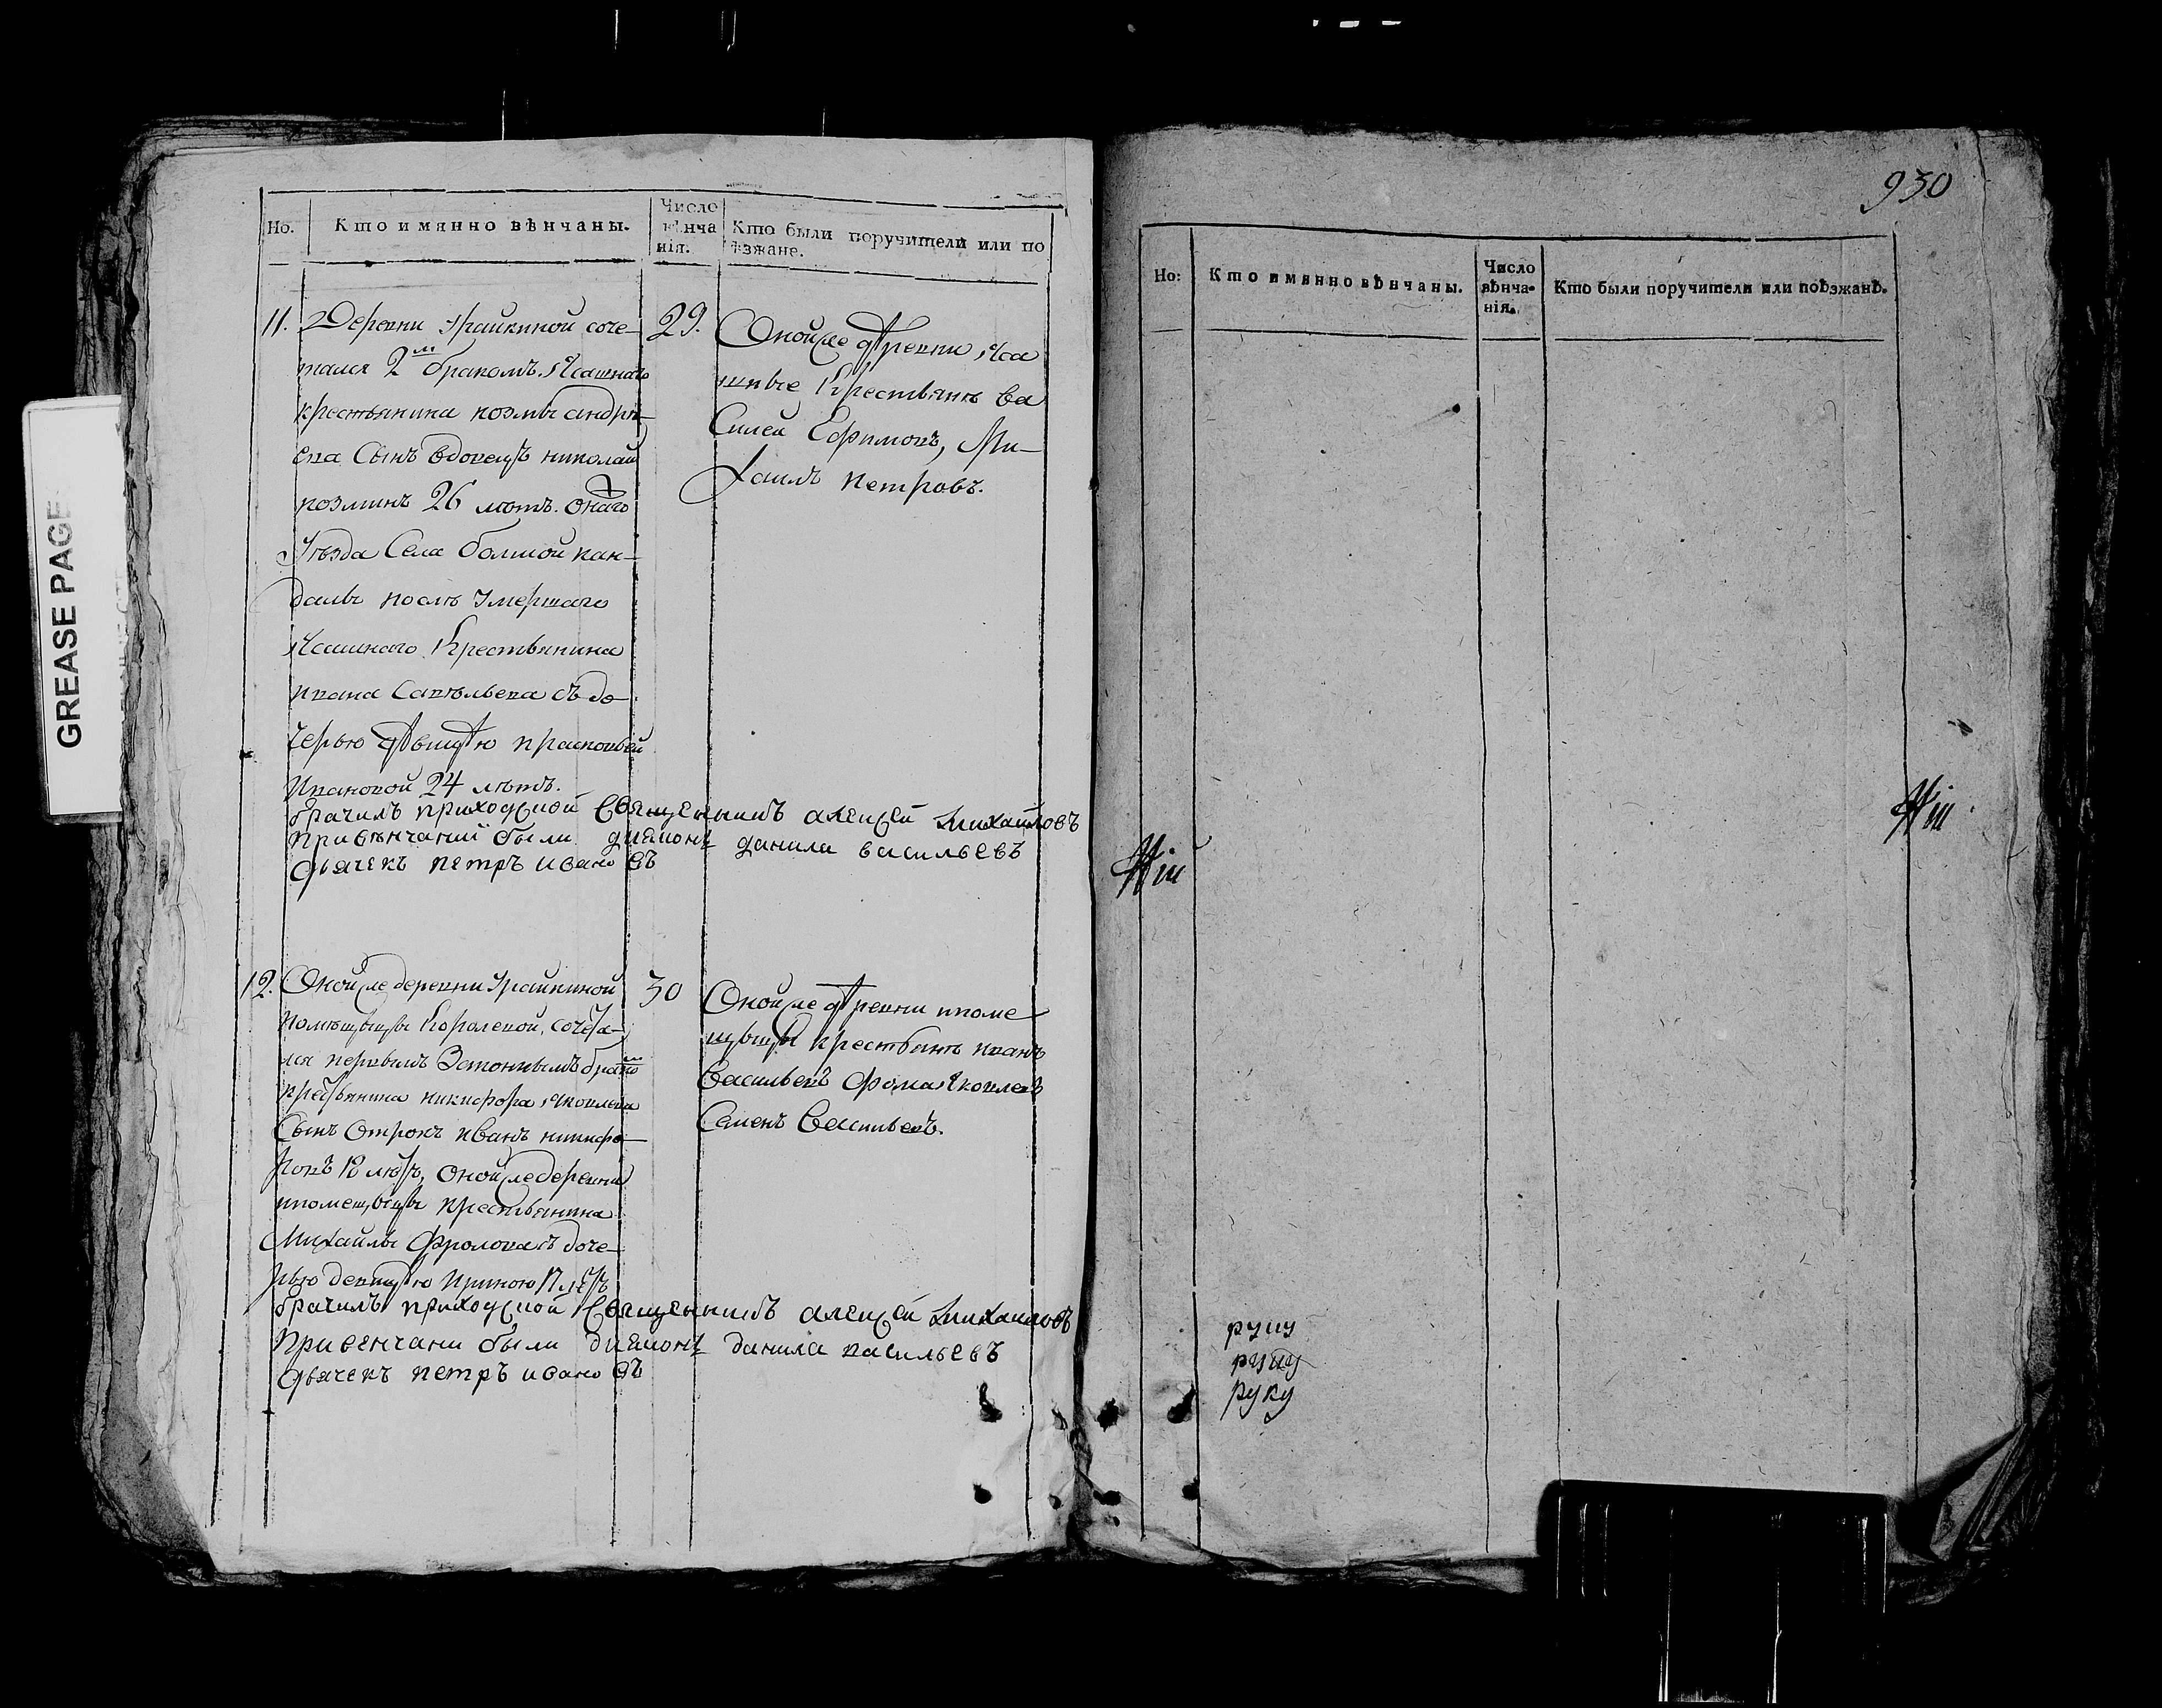 Но.
Кто имянно вѣнчаны.
Число
вѣнча
нія.
Кто были поручители или по
ѣзжане.
11. Деревни Урайкиной соче-
тался 2м бракомъ Ясашнаго
крестьянина козмы андрѣ-
ева Сынъ вдовецъ николай
козминъ 26 лѣтъ. онаго
Уѣзда Села болшой кан-
далы послѣ Умершаго
Ясашнаго Крестьянина
ивана Савѣльева съ до-
черью девицею прасковьей
Ивановой 24 лѣтъ.
29.
Оной же деревни Яса
шные Крестьянѣ ва
Силей Ефимовъ, Ми-
хаилъ петровъ.
брачилъ приходской Священникъ алексей михайловъ
привѣнчаніи были дияконъ данила васильевъ
дьячекъ петръ ивановъ
12. Оной же деревни Урайкиной
помѣщицы Королевой, сочета-
лся первымъ Законнымъ бракомъ
крестьянина никифора Яковлева
Сынъ Отрокъ иванъ никифо-
ровъ лѣтъ, оной же деревни
ипомещицы крестьянина
Михайлы Фролова съ доче-
рью девицею ириною лѣтъ
30
Оной же деревни ипоме
щицы крестьянѣ иванъ
Васильевъ фома Яковлевъ
Семенъ Васильевъ.
брачилъ приходской Священникъ алексей михайловъ
привенчани были дияконъ данила васильевъ
дьячекъ петръ ивановъ
930
Но:
Кто имянно вѣнчаны.
Число
вѣнча-
нія.
Кто были поручители или поѣзжанѣ.
руку
руку
руку